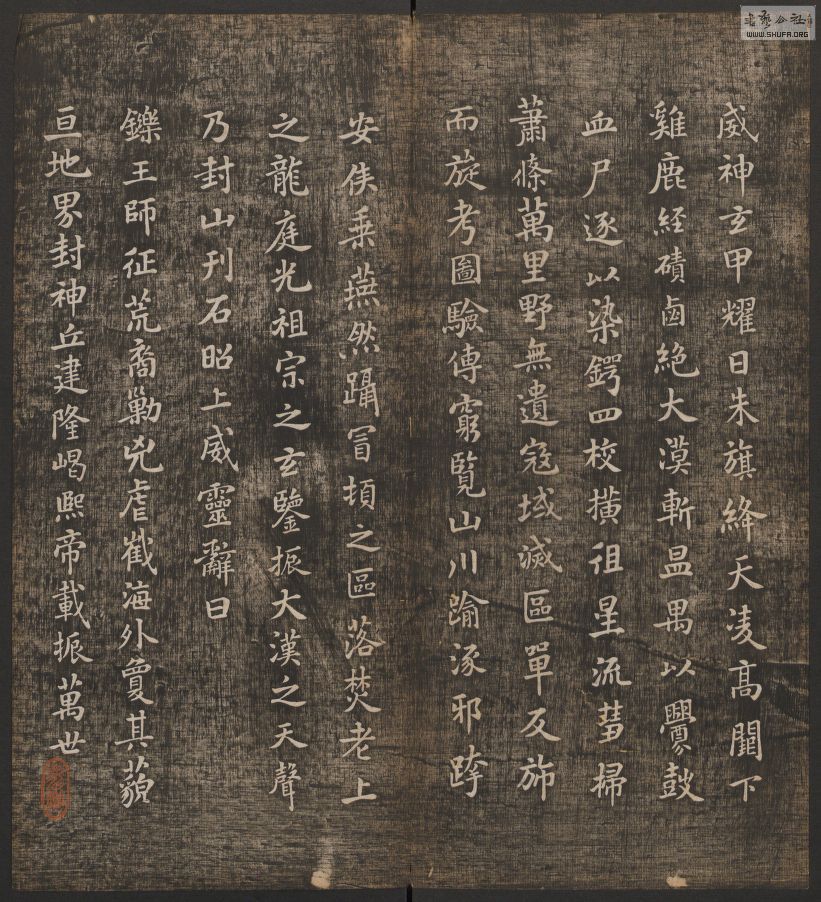 威神玄甲耀日朱旗絳天凌高闕下
雞鹿經磧鹵絕大漠斬昷禺以釁鼓
血尸逐以染鍔四校橫徂星流彗掃
蕭條萬里野無遺寇域滅區單反斾
而旋考圖驗傳窮覽山川踰涿邪跨
安侯乗燕然躡冒頓之區落焚老上
之龍庭光祖宗之玄鑒振大漢之天聲
乃封山刊石昭上威靈辭曰
鑠王師征荒裔勦兇虐截海外敻其藐
亘地界封神丘建隆嵑熙帝載振萬世
WWW.SHUFA.ORG